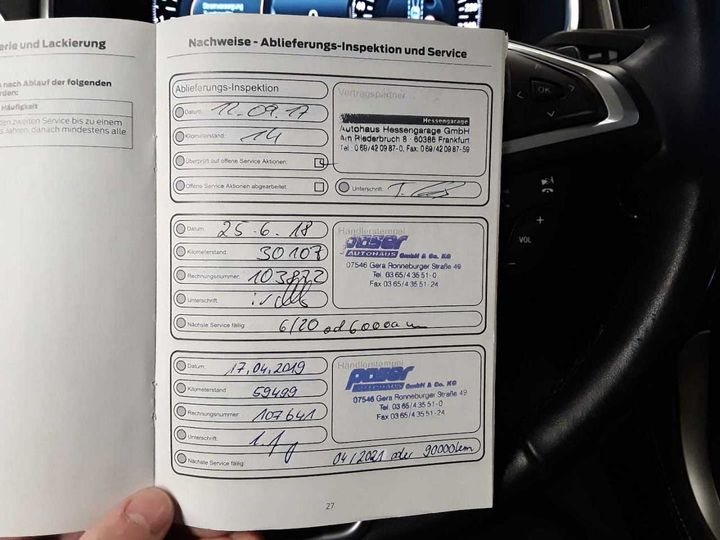 erie und Lackierung
n nach Ablauf der folgenden
rden:
Häufigkeit
den zweiten Service bis zu einem
s Jahren, danach mindestens alle
Nachweise - Ablieferungs-Inspektion und Service
Ablieferungs-Inspektion
Datum: 12.09.17
Kilometerstand: 14
Überprüft auf offene Service Aktionen:
Offene Service Aktionen abgearbeitet:
Vertragspartner
Hessengarage
Autohaus Hessengarage GmbH
Am Riederbruch 8 - 60386 Frankfurt
Tel.: 0 69/42 09 87-0, Fax: 0 69/42 09 87-59
Unterschrift:
Datum: 25.6.18
Kilometerstand: 30107
Rechnungsnummer: 103822
Unterschrift:
Nächste Service fällig: 6/20 od 60000
Händlerstempel
poser
AUTOHAUS GmbH & Co. KG
07546 Gera Ronneburger Straße 49
Tel. 03 65/4 35 51-0
Fax 03 65/4 35 51-24
Datum: 17.04.2019
Kilometerstand: 59499
Rechnungsnummer: 107641
Unterschrift:
Nächste Service fällig: 04/2021 oder 90000km
Händlerstempel
poser
AUTOHAUS GmbH & Co. KG
07546 Gera Ronneburger Straße 49
Tel. 03 65/4 35 51-0
Fax 03 65/4 35 51-24
27
OK
VOL
+